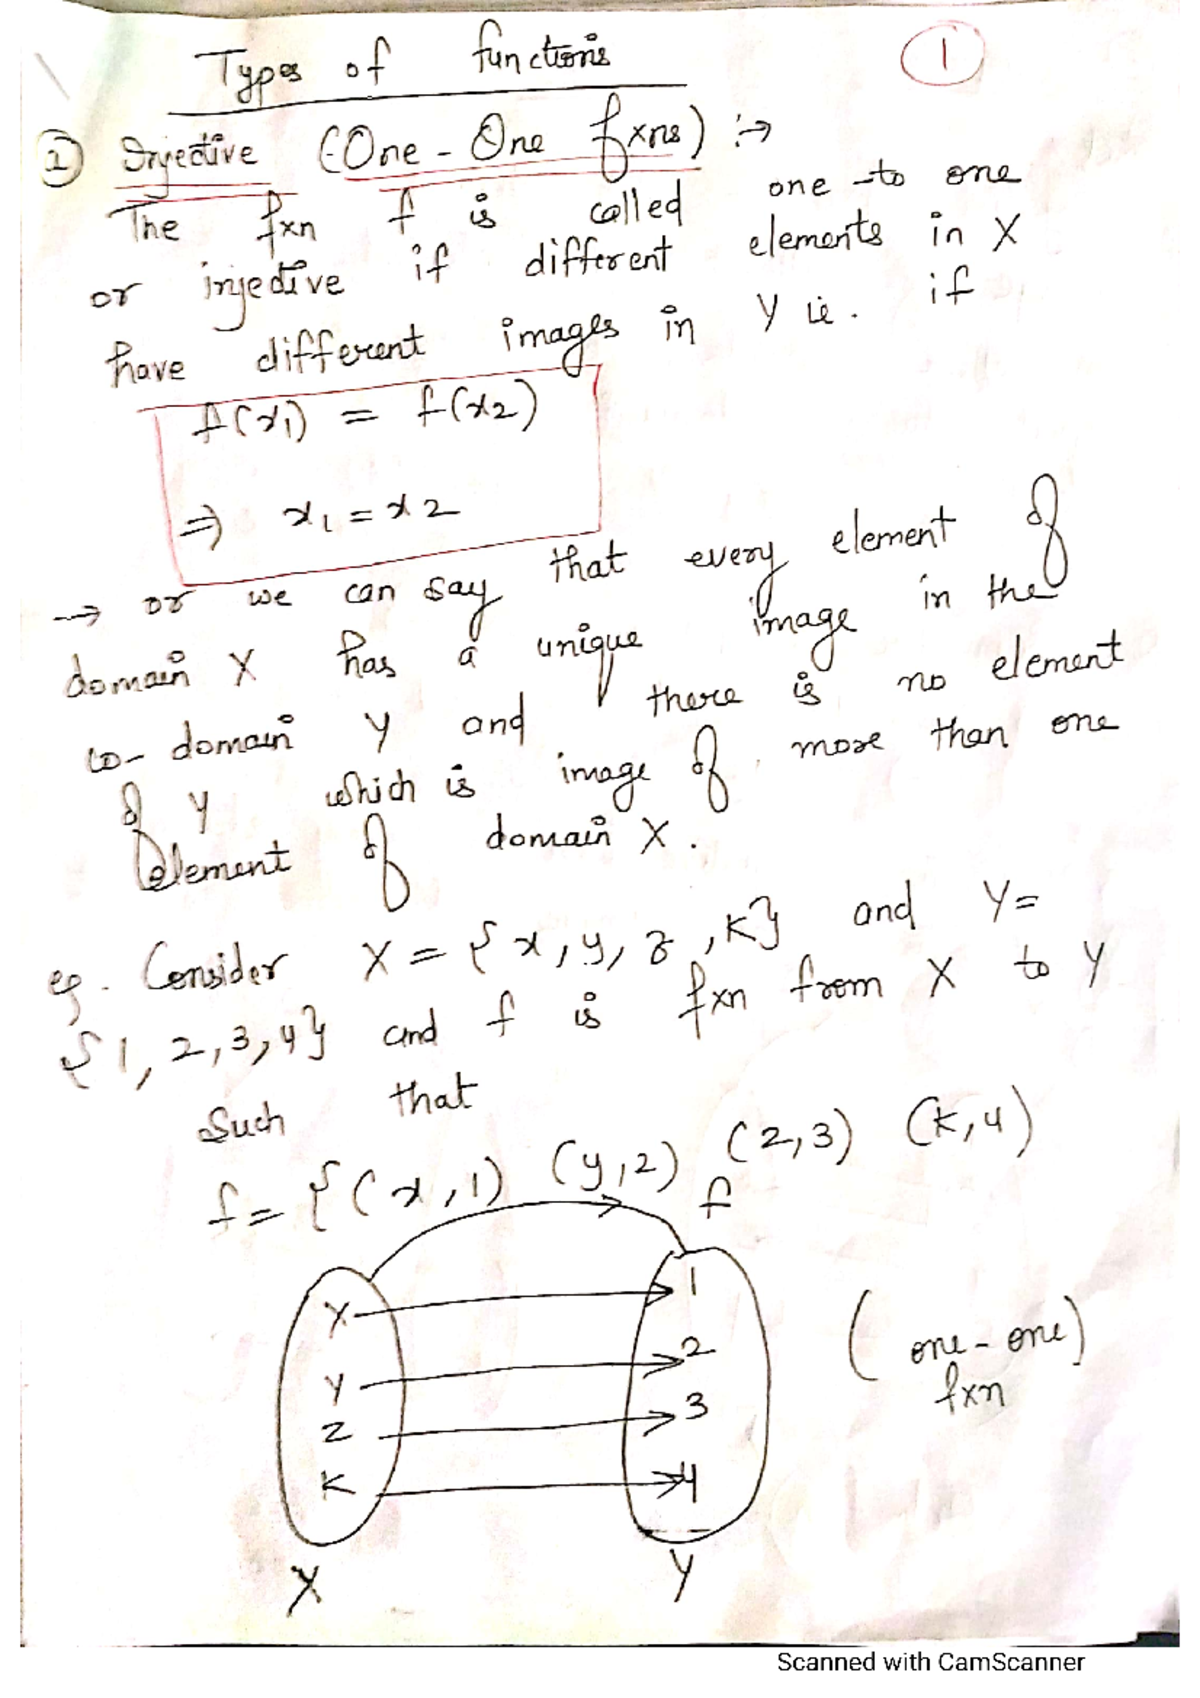 Types of functions
1
① Injective (One - One fxns) :→
The fxn f is called one -to one
or injective if different elements in X
have different images in Y ie. if
f(x1) = f(x2)
⇒ x1 = x2
→ or we can say that every element of
domain X has a unique image in the
co-domain Y and there is no element
of Y which is image of more than one
element of domain X.
eg. Consider X = {x, y, z, k} and Y =
{1, 2, 3, 4} and f is fxn from X to Y
Such that
f = {(x, 1) (y, 2) (z, 3) (k, 4)
f
X 1
Y 2
Z 3
K 4
(one - one)
fxn
X Y
Scanned with CamScanner